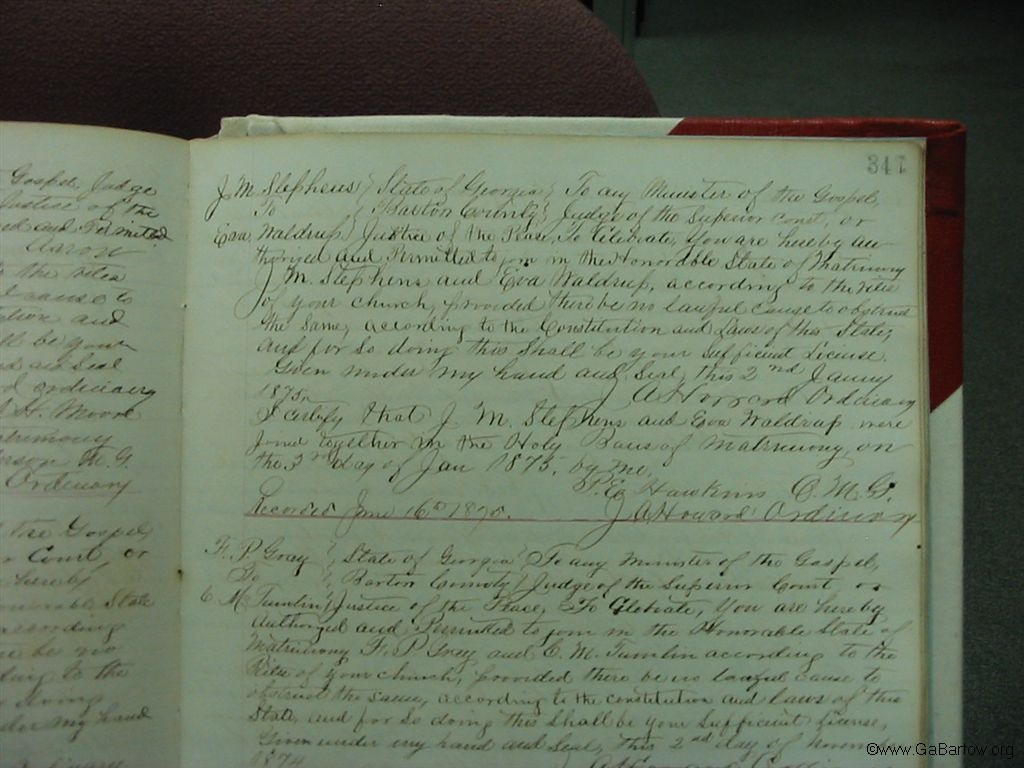 Gospel, Judge
Justice of the
and Permitted
Aaron
to the rites
cause to
and
ll be your
and Seal
ordinary
H. Moore
matrimony
M. G.
Ordinary
the Gospel,
Court or
hereby
State
according
be no
to the
doing
my hand
347
J. M. Stephens } State of Georgia } To any Minister of the Gospel,
To } Bartow County } Judge of the Superior Court, or
Eva Waldrup } Justice of the Peace, To Celebrate, You are hereby au
thorized and Permitted to join in the Honorable State of Matrimony
J. M. Stephens and Eva Waldrup, according to the rites
of your church, provided there be no lawful cause to obstruct
the same, according to the Constitution and Laws of this State,
and for So doing this Shall be your Sufficient License.
Given under my hand and Seal, this 2nd Janny
1875. J A Howard Ordinary
I certify that J. M. Stephens and Eva Waldrup were
joined together in the Holy Bans of Matrimony, on
the 3rd day of Jan 1875, by me,
Hawkins O. M. G.
Recorded June 16th 1875. J A Howard Ordinary
F. P. Gray } State of Georgia } To any Minister of the Gospel,
To } Bartow County } Judge of the Superior Court or
C M Tumlin } Justice of the Peace, To Celebrate, You are hereby
Authorized and Permitted to join in the Honorable State of
Matrimony F. P. Gray and C. M. Tumlin according to the
Rites of your church, provided there be no lawful cause to
obstruct the same, according to the constitution and laws of this
State, and for So doing this Shall be your Sufficient License,
Given under my hand and Seal, this 2nd day of
1874
©www.GaBartow.org